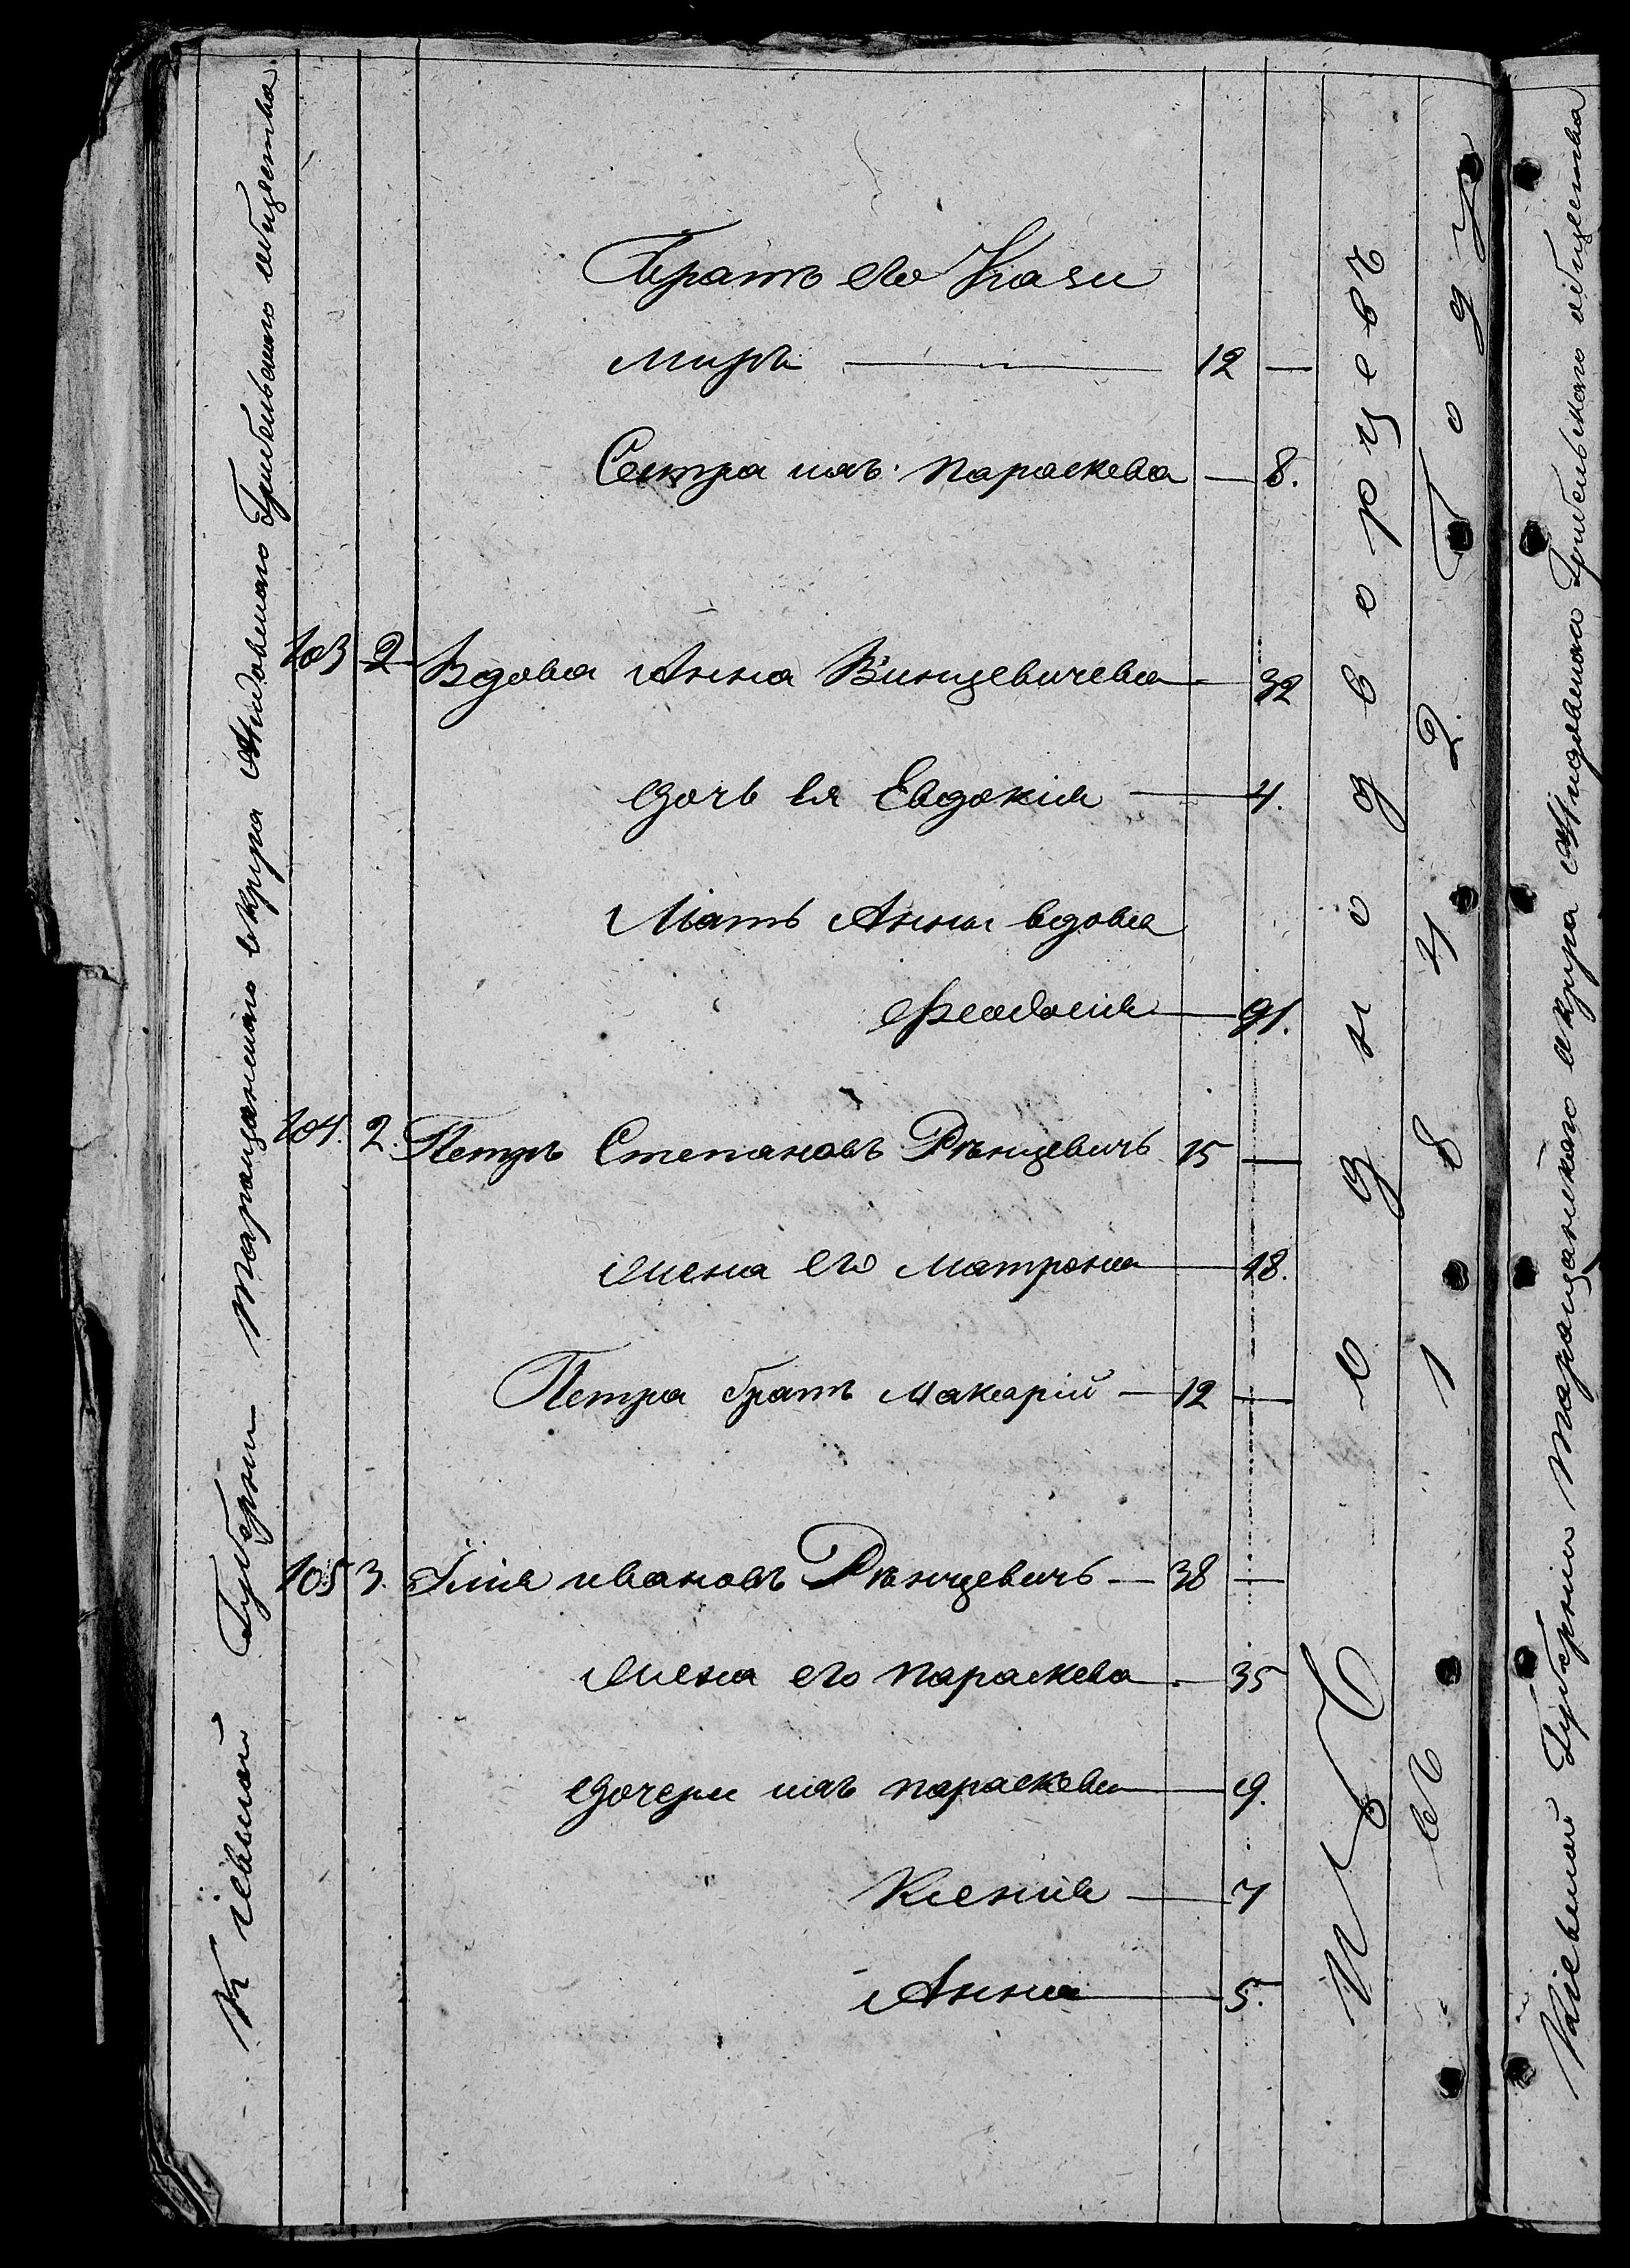 Кіевской Губерніи Таращанскаго округа Жидовского Грибельского общества
Братъ его Кази
миръ — 12 —
Сестра ихъ Параскева — 8.
103 2 Вдова Анна Винцевичева — 32
дочь ея Евдокия — 4.
Мать Анны вдова
Феодосия — 91.
104. 2. Петръ Степановъ Рѣнцевичъ 15 —
жена его Матрона — 18.
Петра братъ Макарій — 12 —
105 3. Илия Ивановъ Рѣнцевичъ — 38 —
жена его Параскева — 35
дочери ихъ Параскева — 9.
Ксения — 7
Анна — 5.
однодворцевъ
1842 Году
Кіевской Губерніи Таращанского округа Жидовского Грибельского общества